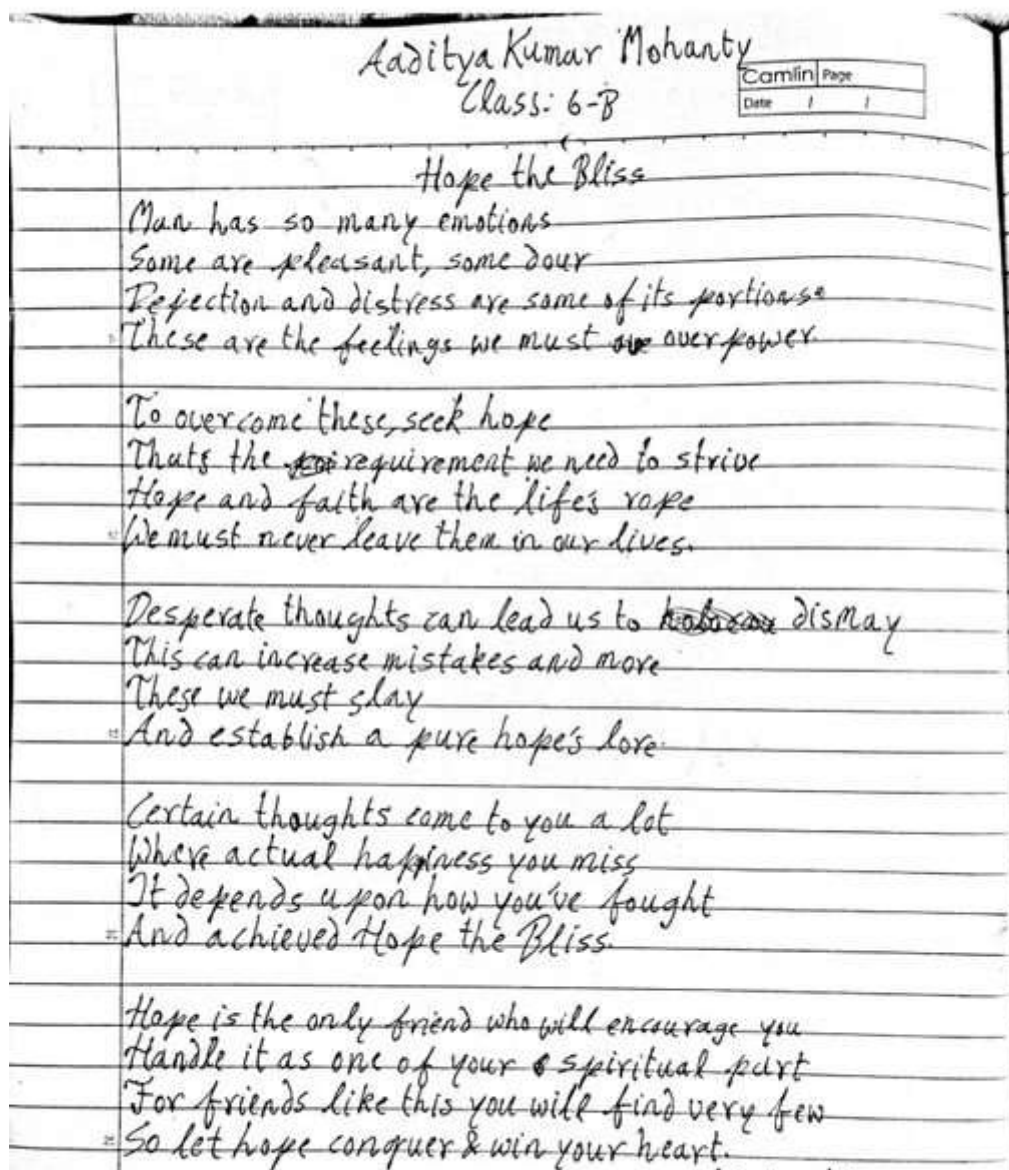 Aaditya Kumar Mohanty
Camlin Page
Class: 6-B
Date / /
Hope the Bliss
Man has so many emotions
Some are pleasant, some dour
Dejection and distress are some of its portions.
These are the feelings we must overpower.
To overcome these, seek hope
Thats the requirement we need to strive
Hope and faith are the life's rope
We must never leave them in our lives.
Desperate thoughts can lead us to dismay
This can increase mistakes and more
These we must slay
And establish a pure hope's lore.
Certain thoughts come to you a lot
Where actual happiness you miss
It depends upon how you've fought
And achieved Hope the Bliss.
Hope is the only friend who will encourage you
Handle it as one of your spiritual part
For friends like this you will find very few
So let hope conquer & win your heart.